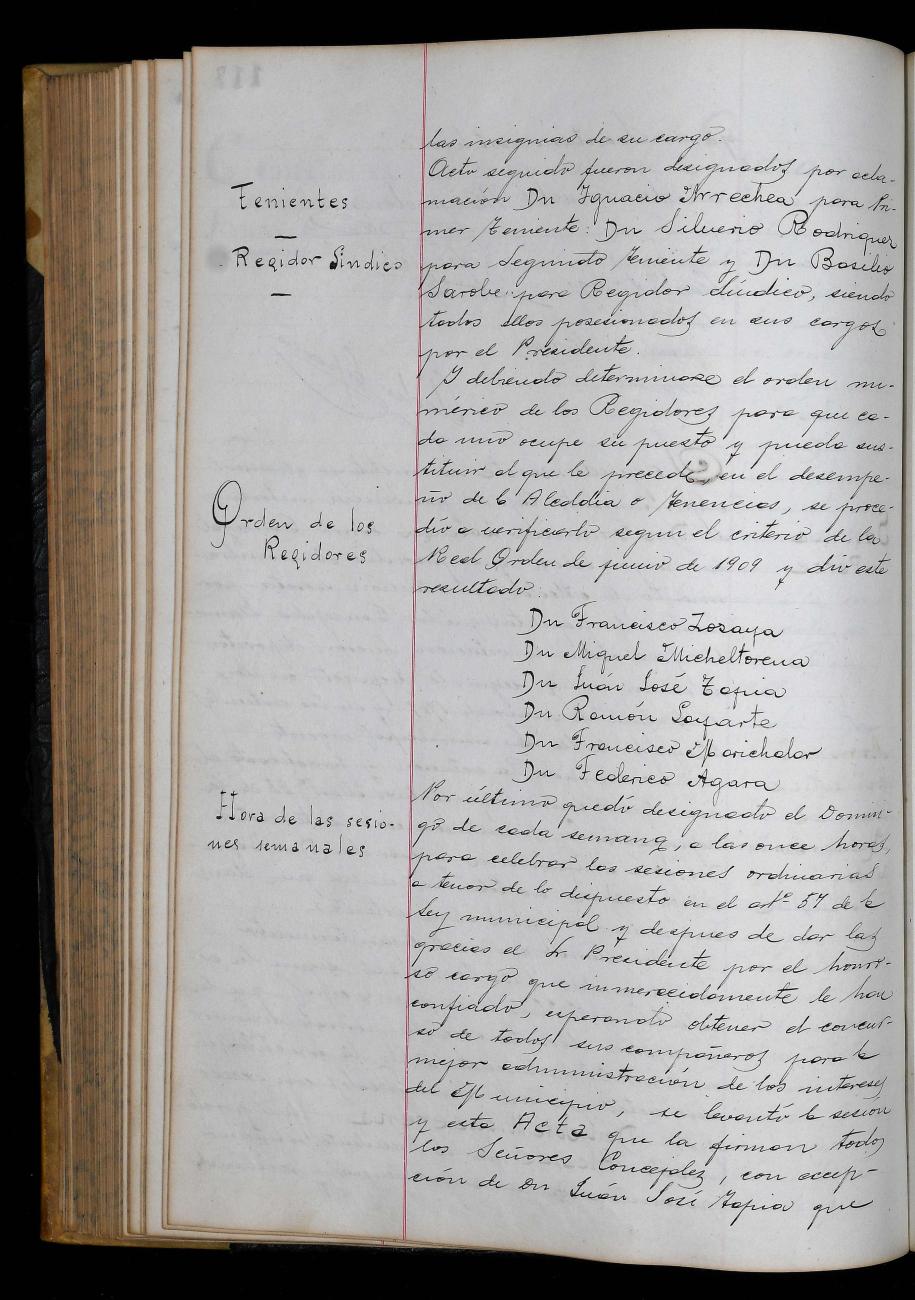 las insignias de su cargo.
Acto seguido fueron designados por acla-
mación Dn Ignacio Arrechea para Pri-
mer Teniente: Dn Silverio Rodriguez
para Segundo Teniente y Dn Basilio
Sarobe para Regidor Síndico, siendo
todos ellos posesionados en sus cargos
por el Presidente.
Tenientes
Regidor Sindico
Y debiendo determinarse el orden nu-
mérico de los Regidores para que ca-
da uno ocupe su puesto y pueda sus-
tituir al que le precede en el desempe-
ño de la Alcaldia o Tenencias, se proce-
dió a verificarlo segun el criterio de la
Real Orden de junio de 1909 y dió este
resultado:
Orden de los
Regidores
Dn Francisco Zozaya
Dn Miguel Micheltorena
Dn Juán José Tapia
Dn Ramón Loyarte
Dn Francisco Marichalar
Dn Federico Agara
Hora de las sesio-
nes semanales
Por último quedó designado el Domin-
go de cada semana, a las once horas,
para celebrar las sesiones ordinarias
a tenor de lo dispuesto en el artº 57 de la
Ley municipal y despues de dar las
gracias el Sr Presidente por el honro-
so cargo que inmerecidamente le han
confiado, esperando obtener el concur-
so de todos sus compañeros para la
mejor administración de los intereses
del Municipio, se levantó la sesión
y esta Acta que la firman todos
los Señores Concejales, con excep-
ción de Dn Juán José Tapia que